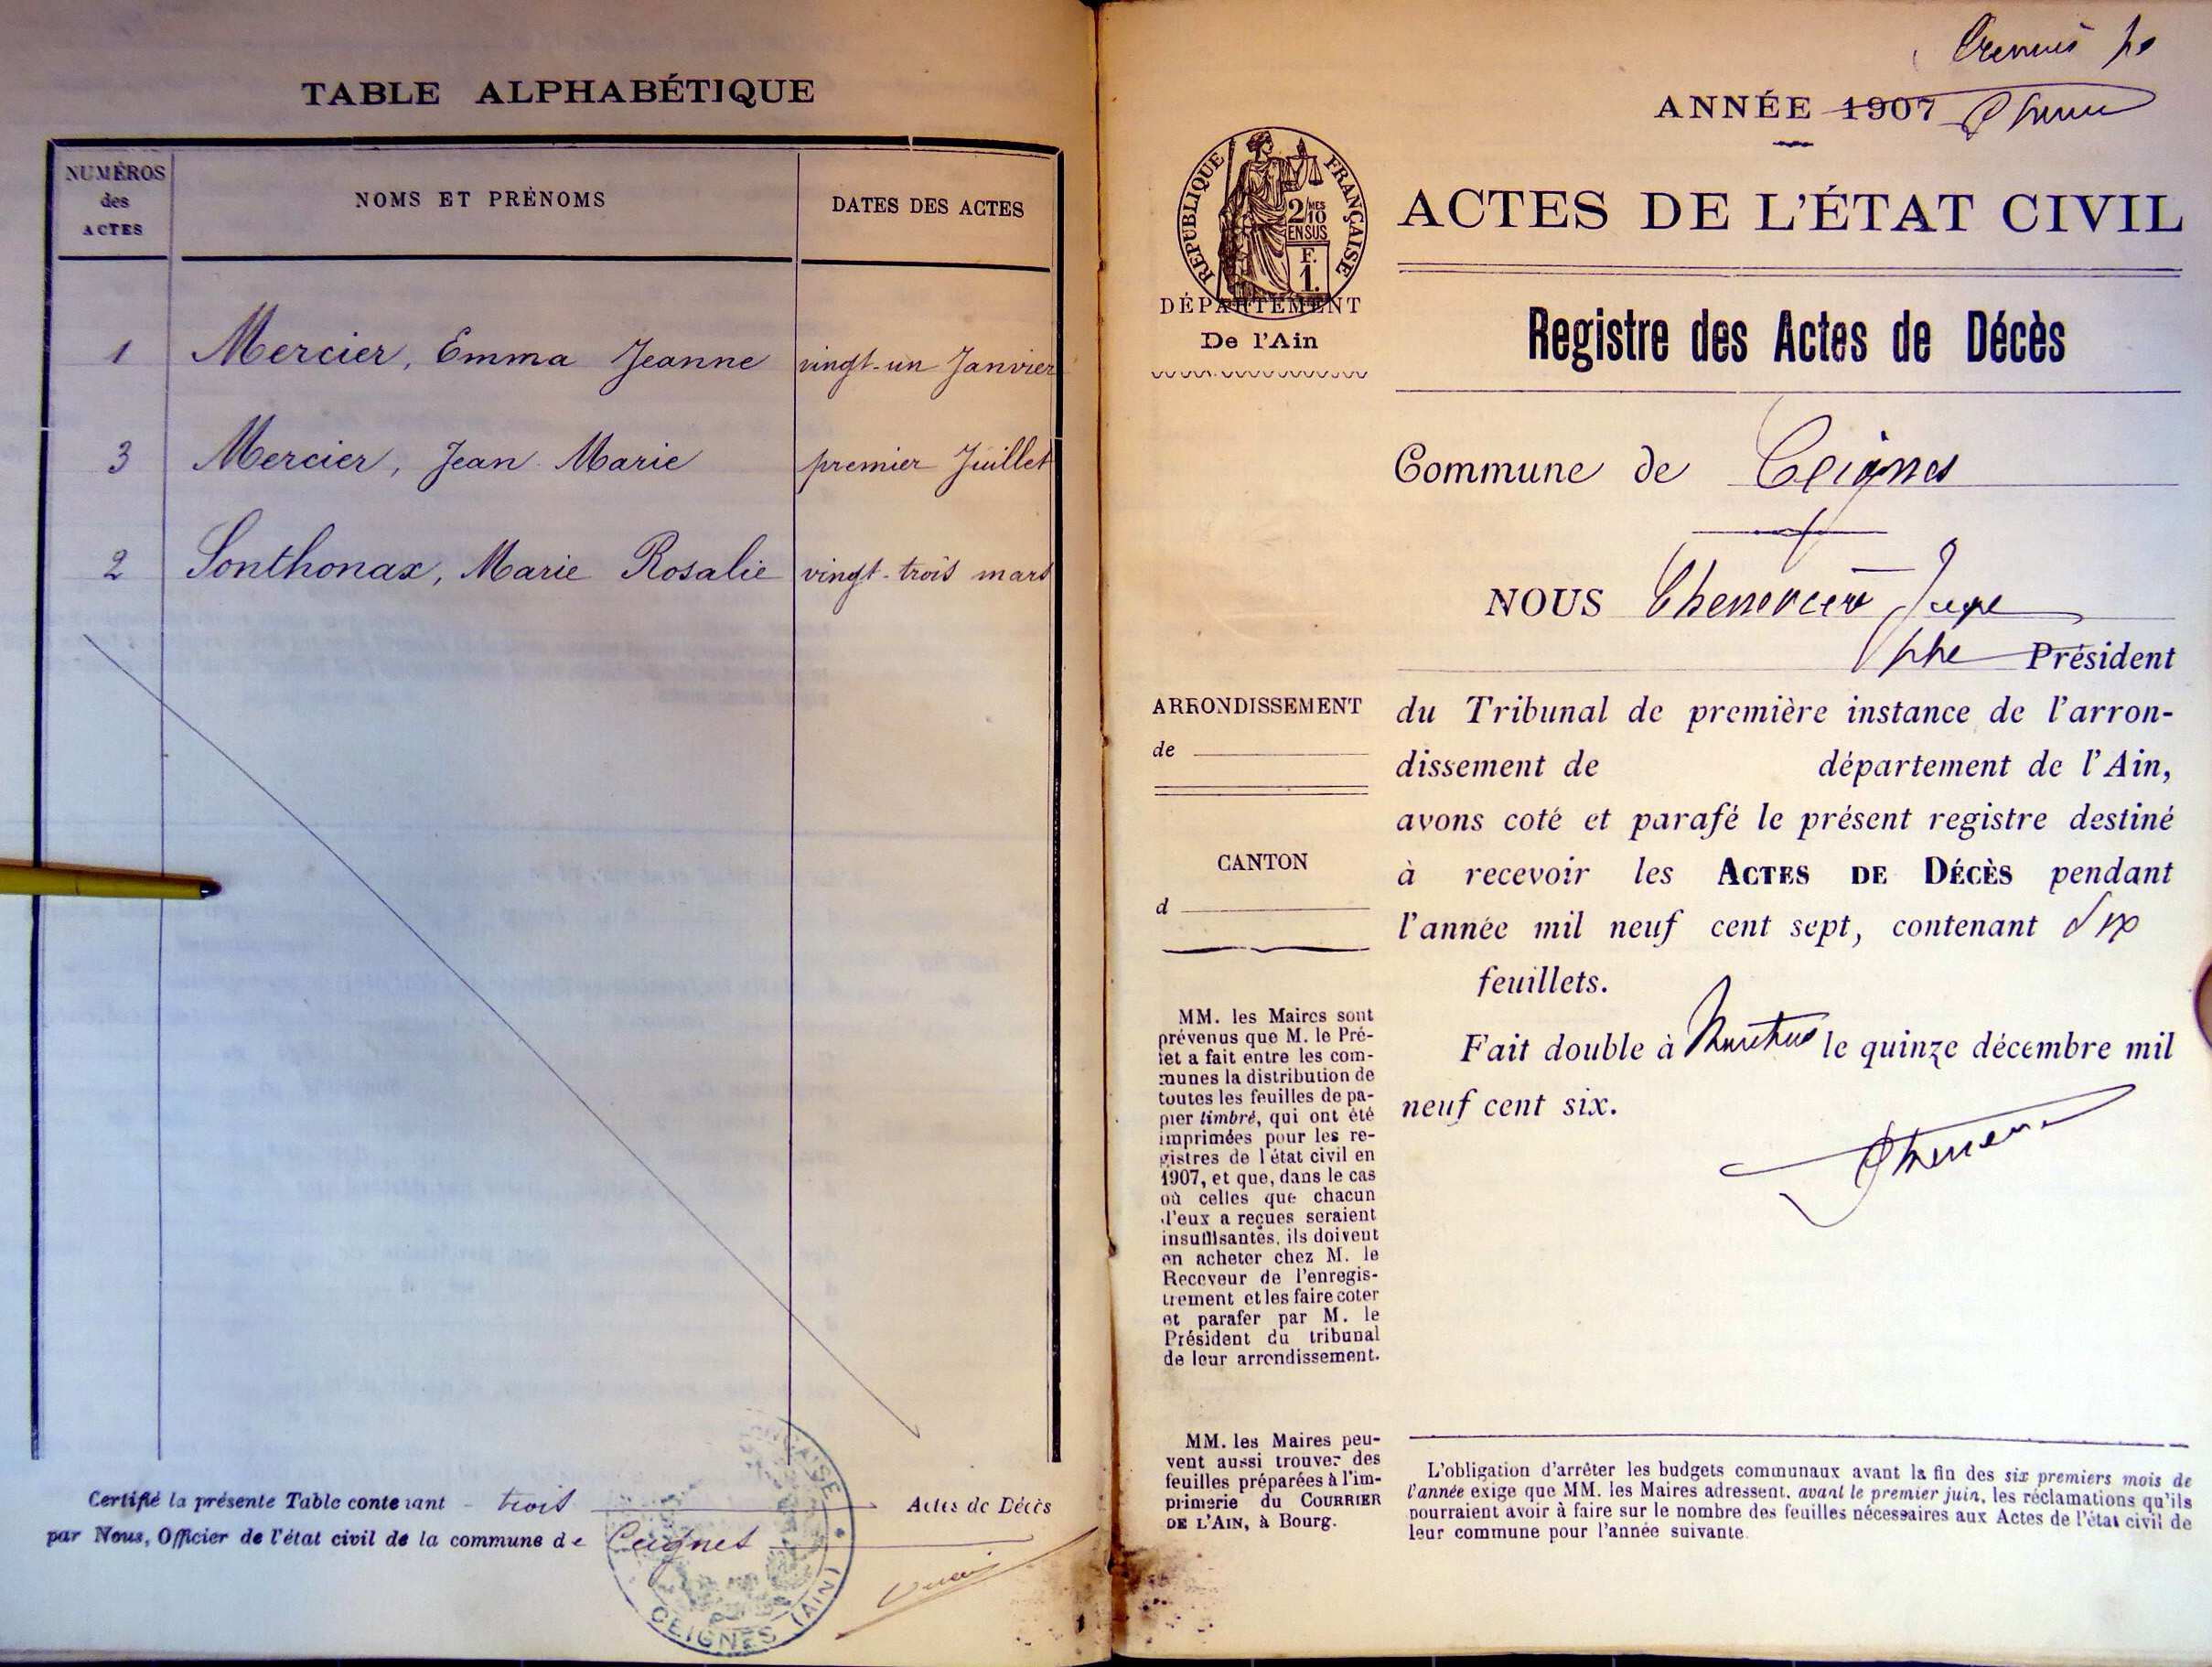 TABLE ALPHABÉTIQUE
NUMÉROS
des
ACTES
NOMS ET PRÉNOMS
DATES DES ACTES
1 Mercier, Emma Jeanne vingt-un Janvier
3 Mercier, Jean Marie premier Juillet
2 Sonthonax, Marie Rosalie vingt-trois mars
Certifié la présente Table contenant trois Actes de Décès
par Nous, Officier de l'état civil de la commune de Ceignes
CEIGNES (AIN)
ANNÉE 1907
RÉPUBLIQUE FRANÇAISE
2/10 MES
EN SUS
F.
1.
ACTES DE L'ÉTAT CIVIL
DÉPARTEMENT
De l'Ain
Registre des Actes de Décès
Commune de Ceignes
NOUS Juge
Président
ARRONDISSEMENT
de
du Tribunal de première instance de l'arron-
dissement de département de l'Ain,
avons coté et parafé le présent registre destiné
CANTON
d
à recevoir les ACTES DE DÉCÈS pendant
l'année mil neuf cent sept, contenant six
feuillets.
Fait double à Nantua le quinze décembre mil
neuf cent six.
MM. les Maires sont
prévenus que M. le Pré-
fet a fait entre les com-
munes la distribution de
toutes les feuilles de pa-
pier timbré, qui ont été
imprimées pour les re-
gistres de l'état civil en
1907, et que, dans le cas
où celles que chacun
d'eux a reçues seraient
insuffisantes, ils doivent
en acheter chez M. le
Receveur de l'enregis-
trement et les faire coter
et parafer par M. le
Président du tribunal
de leur arrondissement.
MM. les Maires peu-
vent aussi trouver des
feuilles préparées à l'im-
primerie du COURRIER
DE L'AIN, à Bourg.
L'obligation d'arrêter les budgets communaux avant la fin des six premiers mois de
l'année exige que MM. les Maires adressent, avant le premier juin, les réclamations qu'ils
pourraient avoir à faire sur le nombre des feuilles nécessaires aux Actes de l'état civil de
leur commune pour l'année suivante.